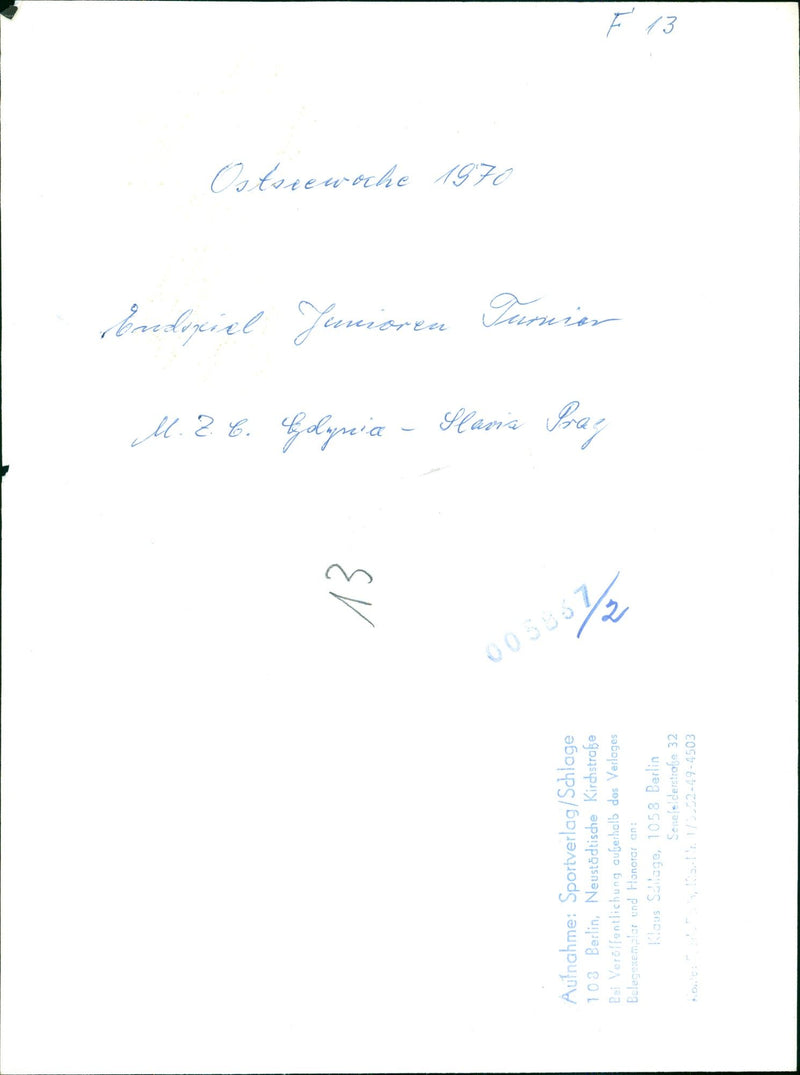 F 13
Ostseewoche 1970
Endspiel Junioren Turnier
M. Z. C. Gdynia - Slavia Prag
13
005857/2
Aufnahme: Sportverlag/Schlage
108 Berlin, Neustädtische Kirchstraße
Bei Veröffentlichung außerhalb des Verlages
Belegexemplar und Honorar an:
Klaus Schlage, 1058 Berlin
Senefelderstraße 32
-49-4503